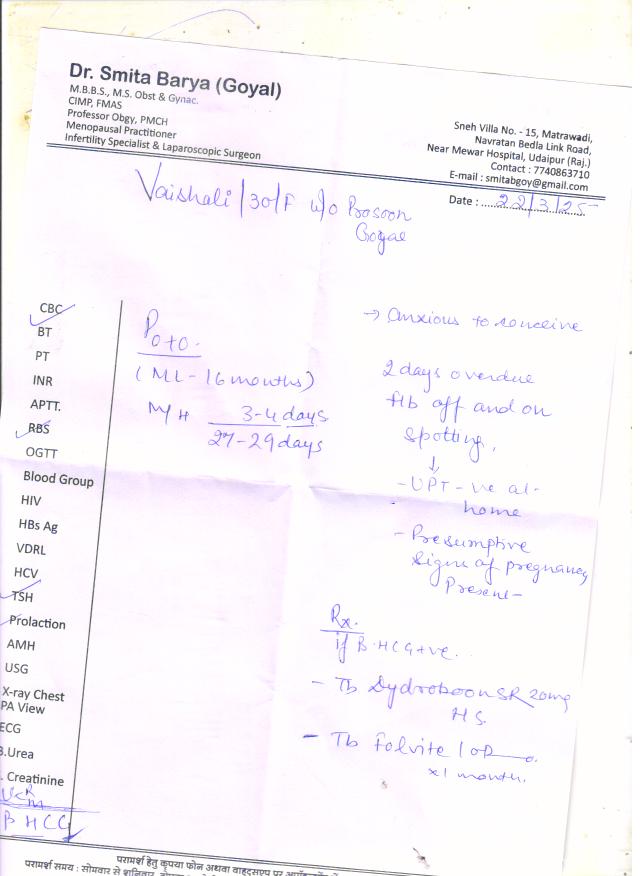 Dr. Smita Barya (Goyal)
M.B.B.S., M.S. Obst & Gynac.
CIMP, FMAS
Professor Obgy, PMCH
Menopausal Practitioner
Infertility Specialist & Laparoscopic Surgeon
Sneh Villa No. - 15, Matrawadi,
Navratan Bedla Link Road,
Near Mewar Hospital, Udaipur (Raj.)
Contact : 7740863710
E-mail : smitabgoy@gmail.com
Date : 22/3/25
Vaishali /30/F w/o Prosoon
Goyal
CBC
BT
PT
INR
APTT.
RBS
OGTT
Blood Group
HIV
HBs Ag
VDRL
HCV
TSH
Prolaction
AMH
USG
X-ray Chest
PA View
ECG
B.Urea
. Creatinine
B HCG
P0+0.
(ML - 16 months)
M/H 3-4 days
27-29 days
→ Anxious to conceive
2 days overdue
f/b off and on
spotting,
↓
- UPT -ve at-
home
- Presumptive
signs of pregnancy
Present-
Rx.
if B.HCG +ve.
- Tb Dydroboon SR 20mg
HS.
- Tb Folvite 1 OD
x1 month.
परामर्श हेतु कृपया फोन अथवा वाट्सएप पर
परामर्श समय : सोमवार से शनिवार